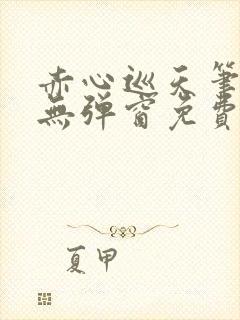 赤心巡天筆
無彈窗免費
夏甲